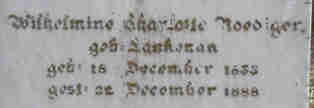 Wilhelmine Charlotte Roediger,
geb: Lankenau
geb: 18 December 1833
gest: 22 December 1888